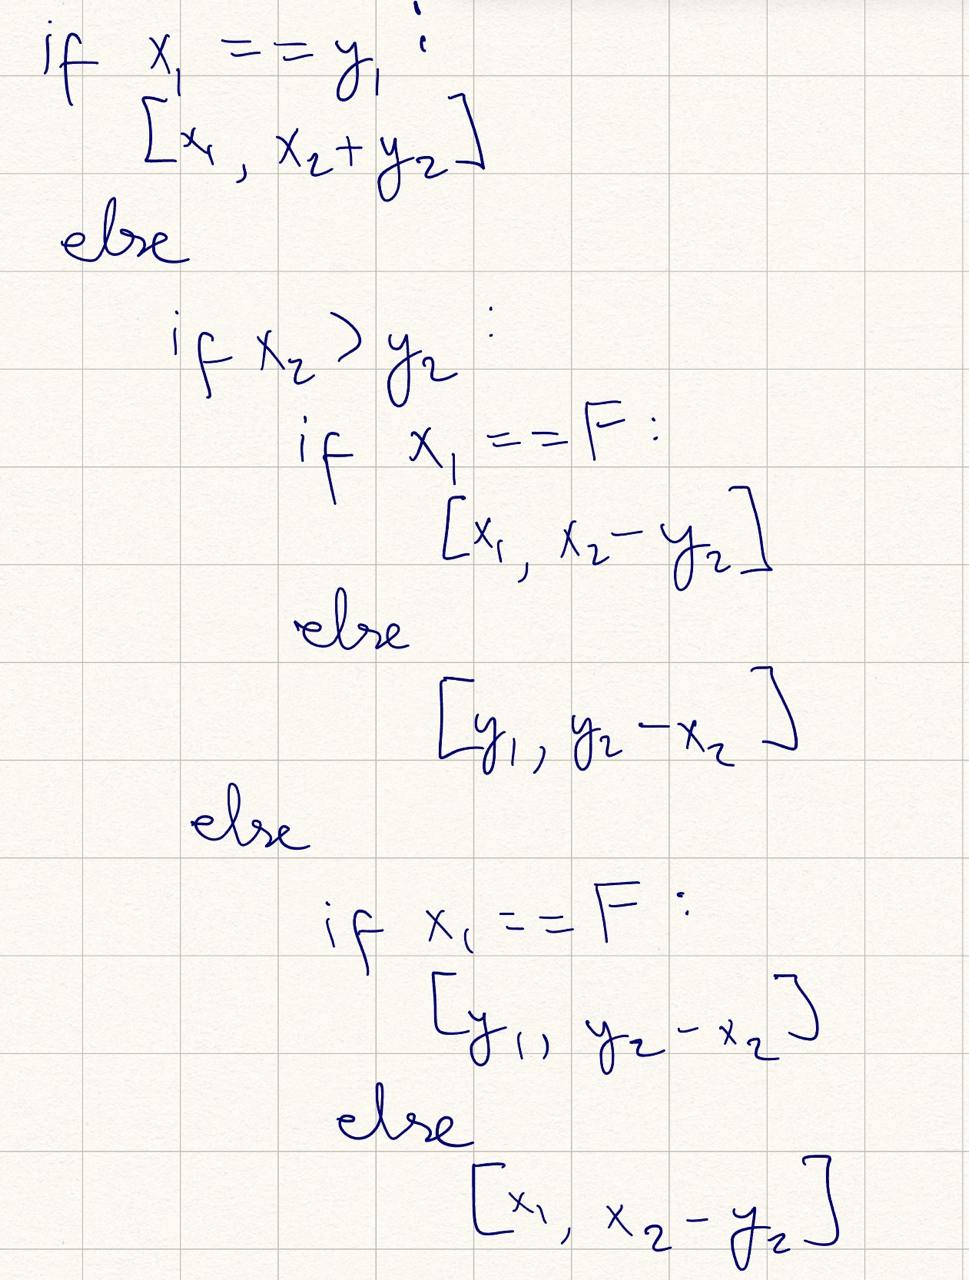 if x₁ == y₁ :
[x₁, x₂+y₂]
else
if x₂ > y₂ :
if x₁ == F :
[x₁, x₂-y₂]
else
[y₁, y₂-x₂]
else
if x₁ == F :
[y₁, y₂-x₂]
else
[x₁, x₂-y₂]